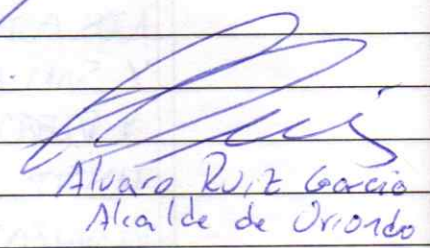 Alvaro Ruiz García
Alcalde de Oriondo